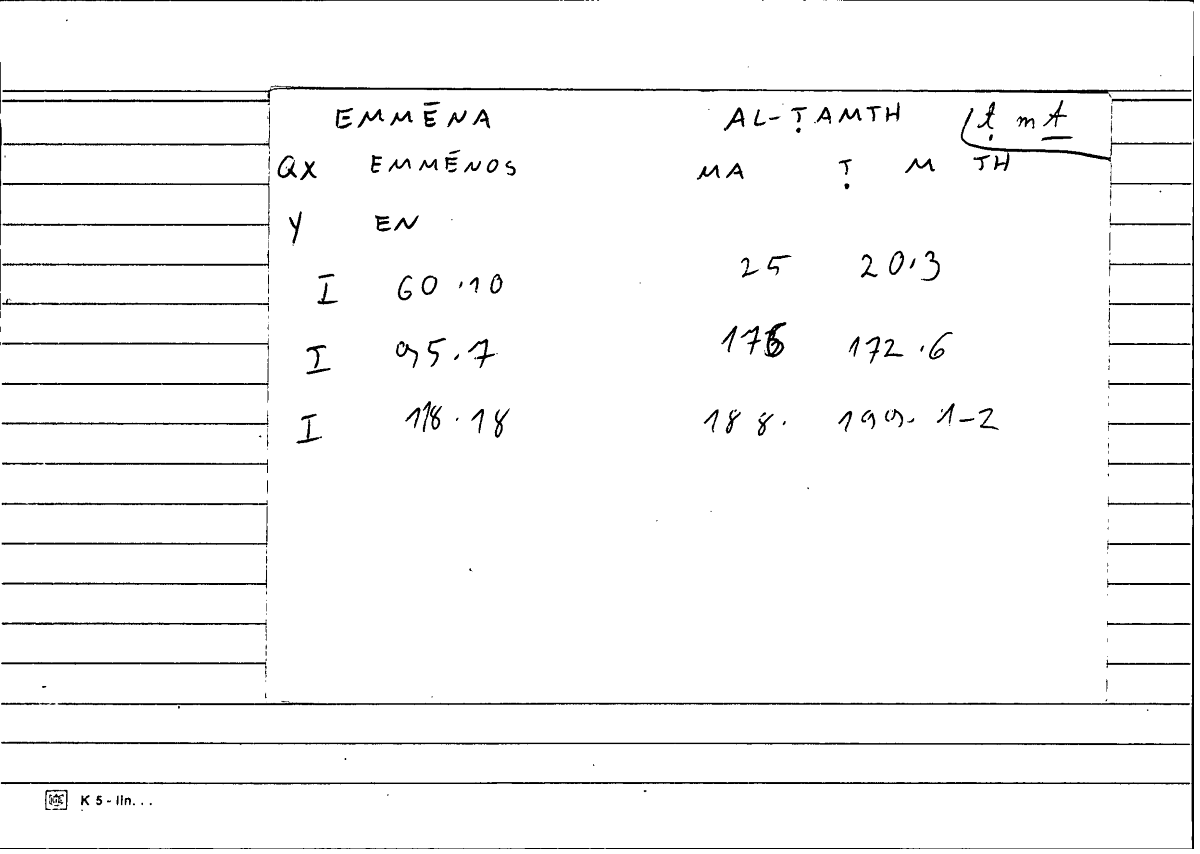 EMMĒNA AL-ṬAMTH ṭ m t
QX EMMĒNOS MA Ṭ M TH
Y EN
I 60.10 25 20.3
I 95.7 172.6
I 118.18 188. 199. 1-2
K 5 - lin...